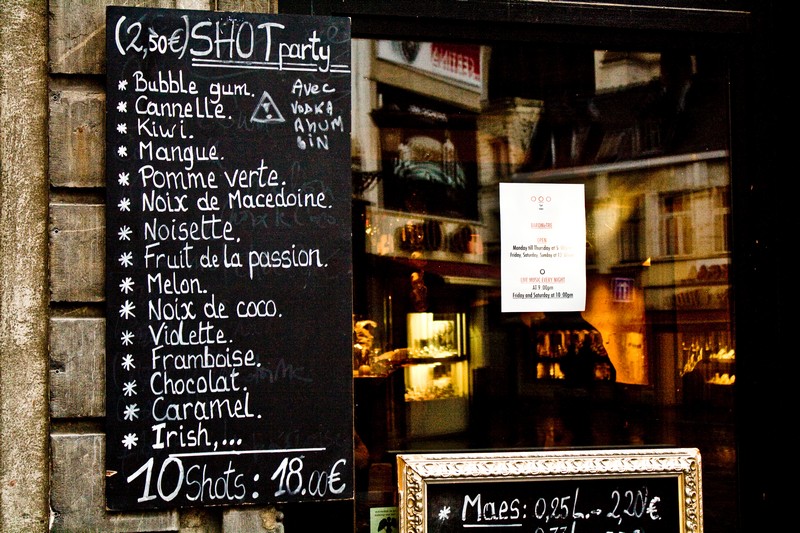 (2,50€) SHOT party
* Bubble gum.
* Cannelle.
* Kiwi.
* Mangue.
* Pomme verte.
* Noix de Macedoine.
* Noisette.
* Fruit de la passion.
* Melon.
* Noix de coco.
* Violette.
* Framboise.
* Chocolat.
* Caramel.
* Irish,...
10 Shots: 18.00€
Avec
VODKA
RHUM
GIN
OPEN
Monday till Thursday at
Friday, Saturday, Sunday at
LIVE MUSIC EVERY NIGHT
AT 9:00pm
Friday and Saturday at 10:00pm
* Maes: 0,25 L. → 2,20€.